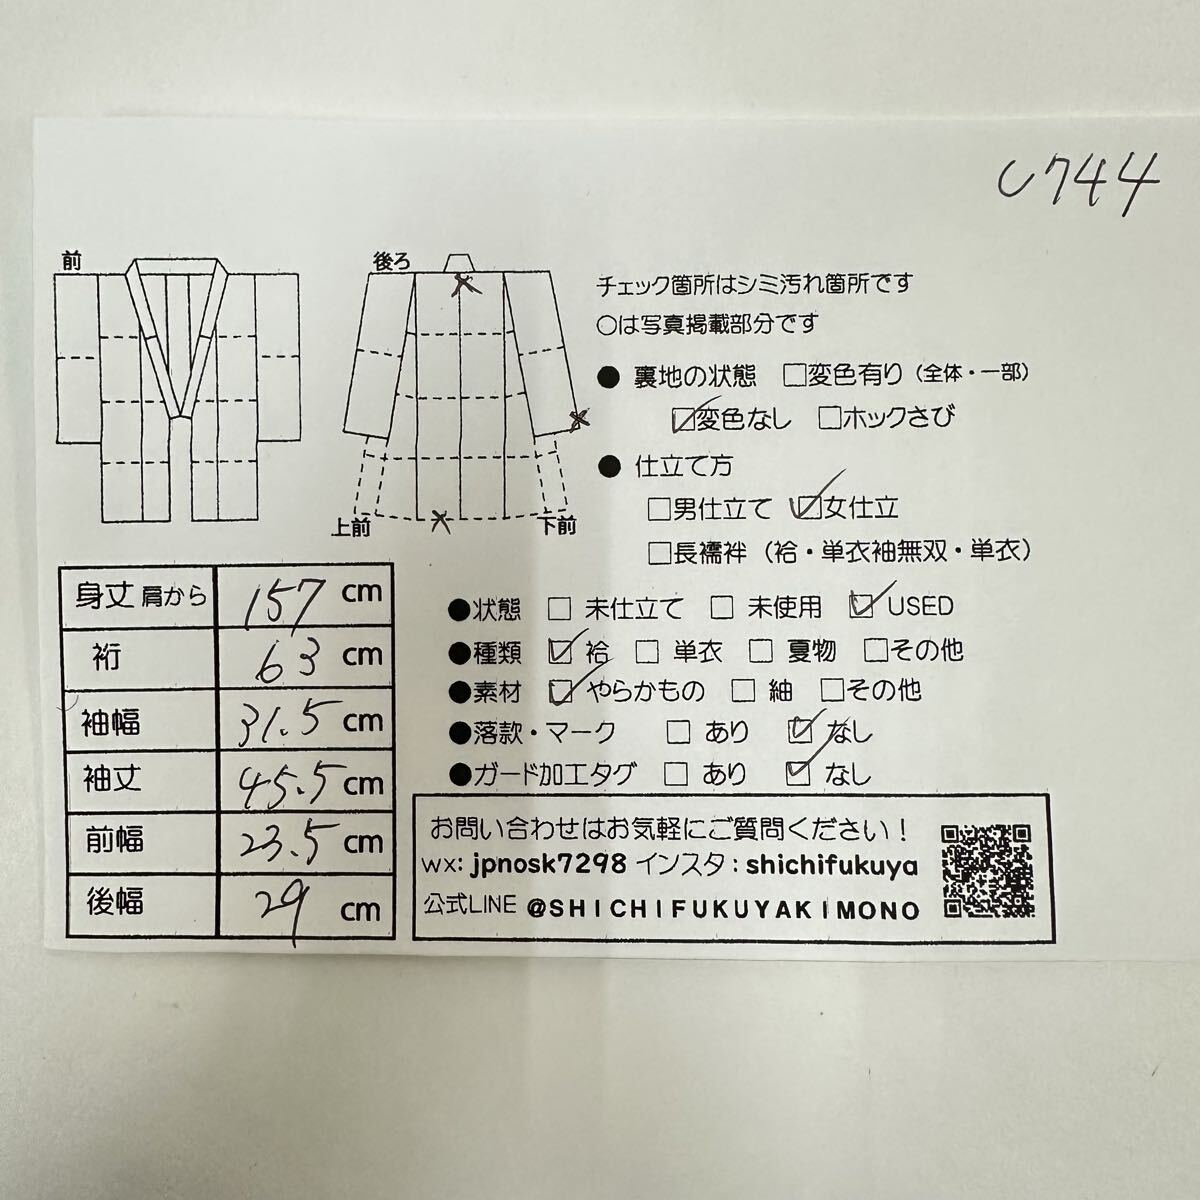 C744
前
後ろ
上前
下前
チェック箇所はシミ汚れ箇所です
○は写真掲載部分です
● 裏地の状態 □変色有り（全体・一部）
☑変色なし □ホックさび
● 仕立て方
□男仕立て ☑女仕立
□長襦袢（袷・単衣袖無双・単衣）
●状態 □ 未仕立て □ 未使用 ☑USED
●種類 ☑ 袷 □ 単衣 □ 夏物 □その他
●素材 ☑ やらかもの □ 紬 □その他
●落款・マーク □ あり ☑ なし
●ガード加工タグ □ あり ☑ なし
身丈肩から 157 cm
裄 63 cm
袖幅 31.5 cm
袖丈 45.5 cm
前幅 23.5 cm
後幅 29 cm
お問い合わせはお気軽にご質問ください！
wx: jpnosk7298 インスタ : shichifukuya
公式LINE @SHICHIFUKUYAKIMONO